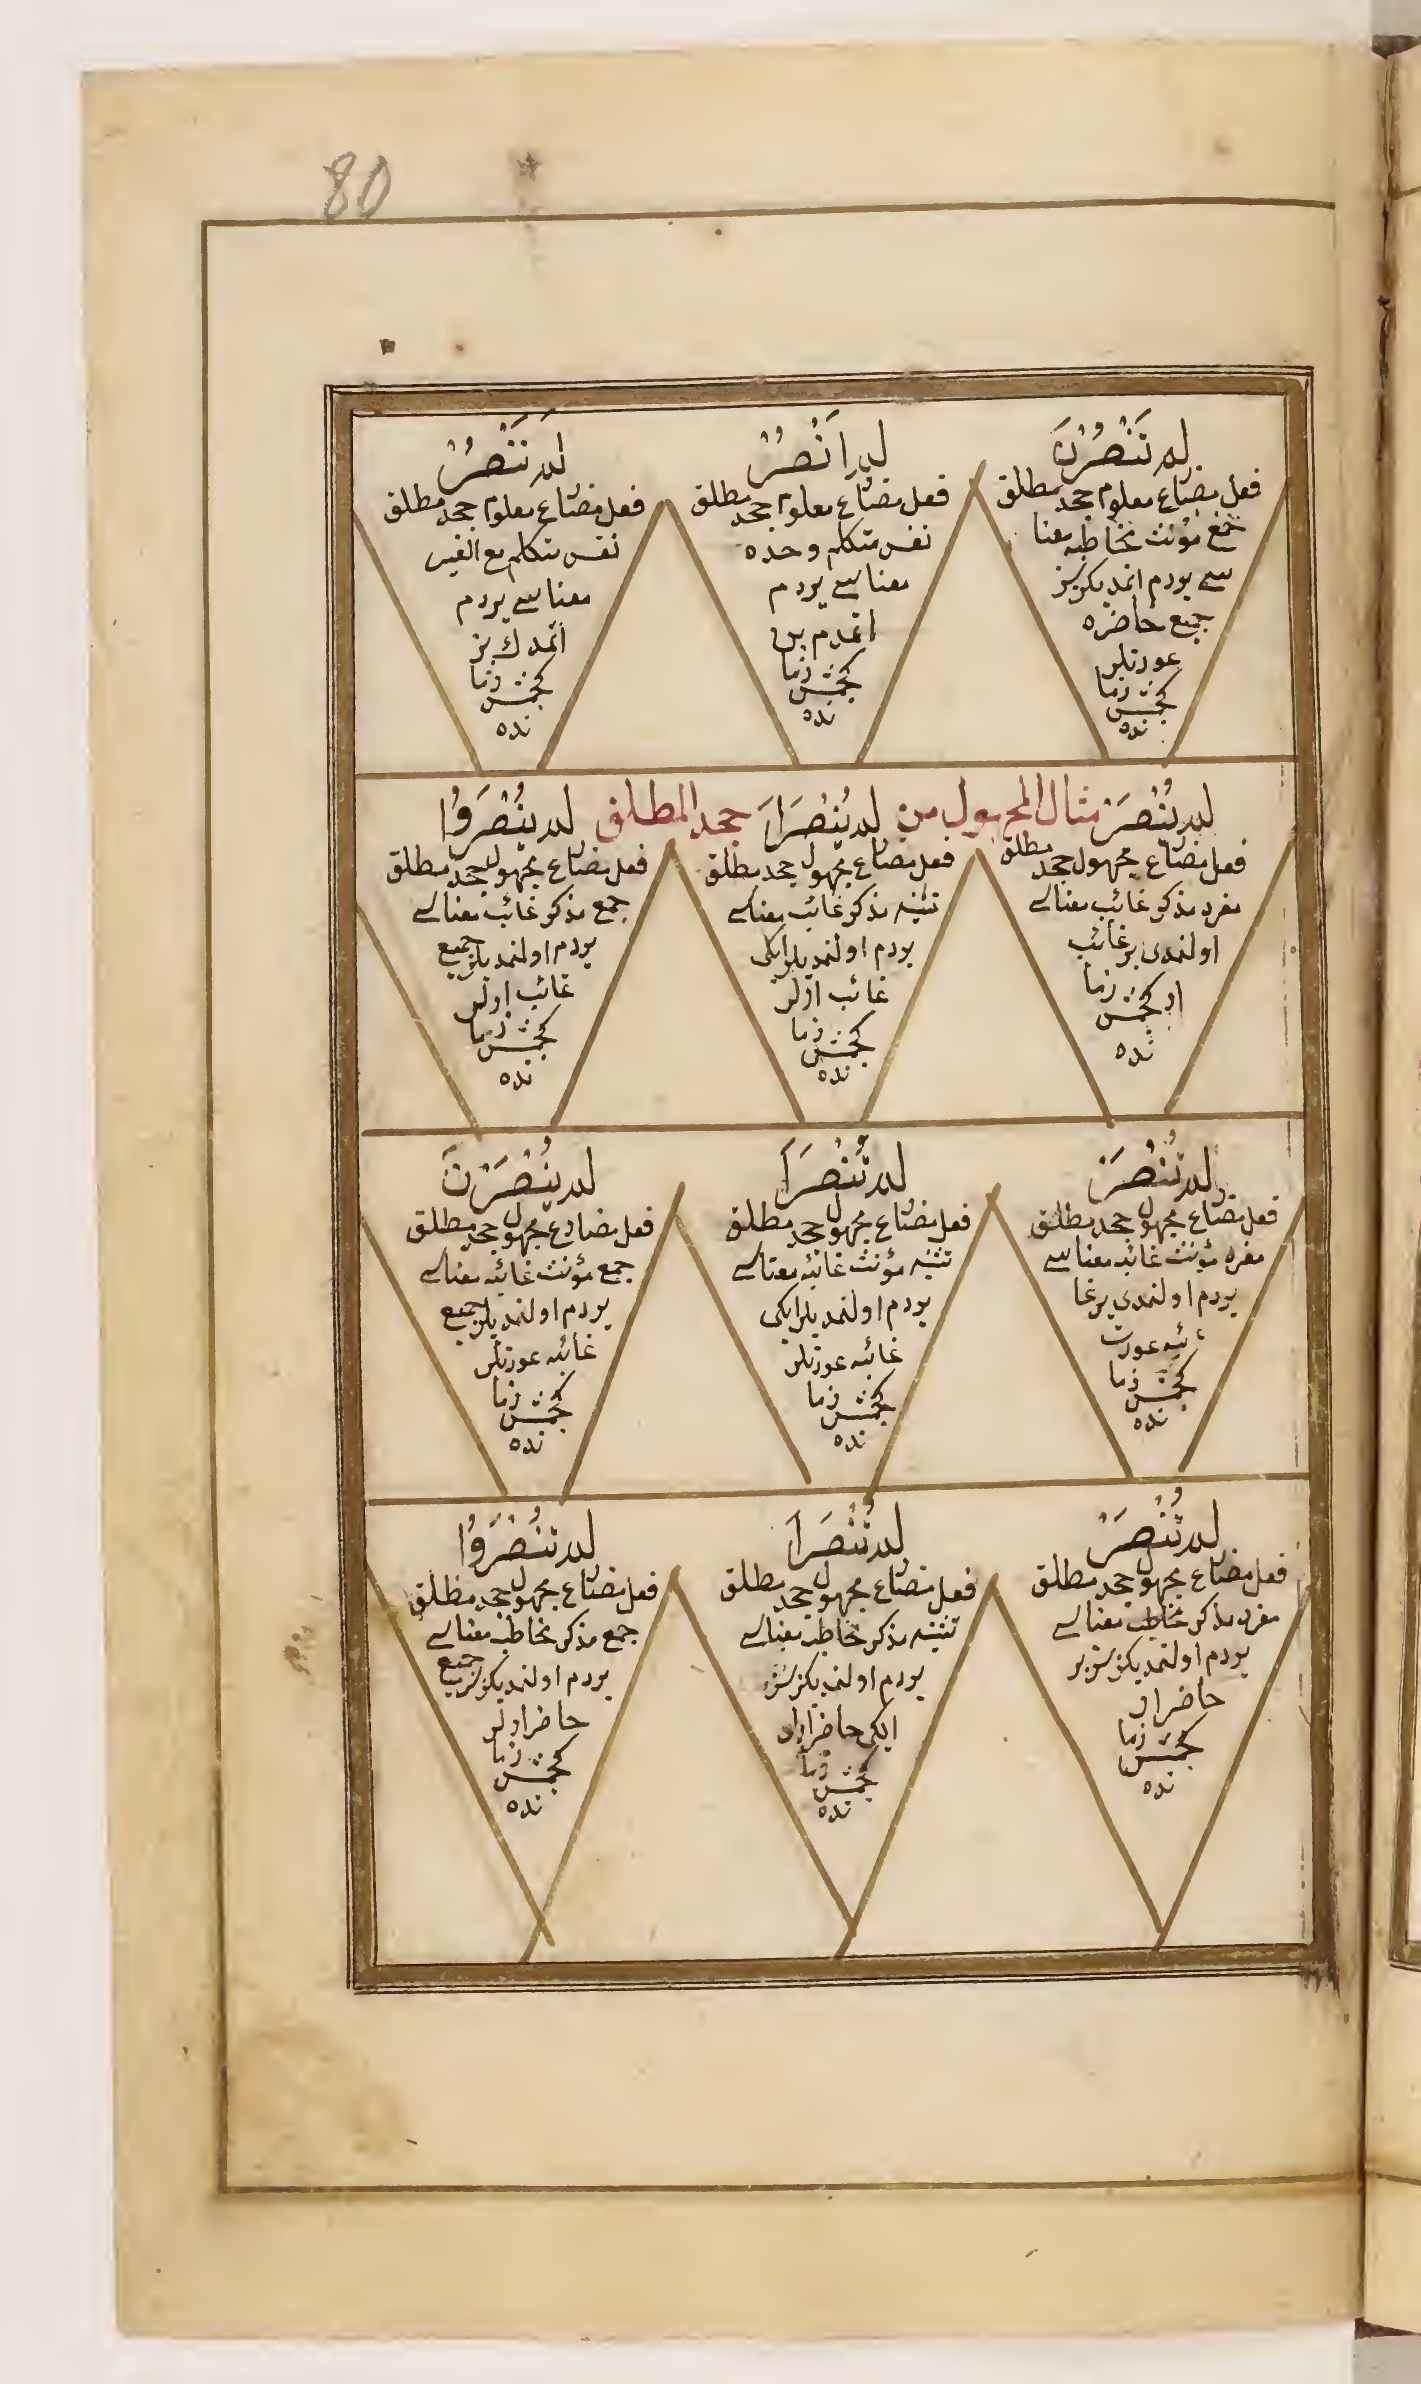 80
لم تَنْصُرْنَ
فعل مضارع معلوم جحد مطلق
جمع مؤنث مخاطبه معنا
سى يردم اتمديكز سز
جميع حاضره
عورتلر
كچمش زما
نده
لم اَنْصُرْ
فعل مضارع معلوم جحد مطلق
نفس متكلم وحده
معناسى يردم
اتمدم بن
كچمش زما
نده
لم نَنْصُرْ
فعل مضارع معلوم جحد مطلق
نفس متكلم مع الغير
معناسى يردم
اتمدك بز
كچمش زما
نده
مثال المجهول من جحد المطلق
لم يُنْصَرْ
فعل مضارع مجهول جحد مطلق
مفرد مذكر غائب معناسى
اولنمدى بر غائب
ار كچمش زما
نده
لم يُنْصَرَا
فعل مضارع مجهول جحد مطلق
تثنيه مذكر غائب معناسى
يردم اولنمديلر ايكى
غائب ارلر
كچمش زما
نده
لم يُنْصَرُوا
فعل مضارع مجهول جحد مطلق
جمع مذكر غائب معناسى
يردم اولنمديلر جميع
غائب ارلر
كچمش زما
نده
لم تُنْصَرْ
فعل مضارع مجهول جحد مطلق
مفرد مؤنث غائبه معناسى
يردم اولنمدى بر غا
ئبه عورت
كچمش زما
نده
لم تُنْصَرَا
فعل مضارع مجهول جحد مطلق
تثنيه مؤنث غائبه معناسى
يردم اولنمديلر ايكى
غائبه عورتلر
كچمش زما
نده
لم يُنْصَرْنَ
فعل مضارع مجهول جحد مطلق
جمع مؤنث غائبه معناسى
يردم اولنمديلر جميع
غائبه عورتلر
كچمش زما
نده
لم تُنْصَرْ
فعل مضارع مجهول جحد مطلق
مفرد مذكر مخاطب معناسى
يردم اولنمديكز سن بر
حاضر ار
كچمش زما
نده
لم تُنْصَرَا
فعل مضارع مجهول جحد مطلق
تثنيه مذكر مخاطب معناسى
يردم اولنمديكز سز
ايكى حاضر ارلر
كچمش زما
نده
لم تُنْصَرُوا
فعل مضارع مجهول جحد مطلق
جمع مذكر مخاطب معناسى
يردم اولنمديكز سز جميع
حاضر ارلر
كچمش زما
نده